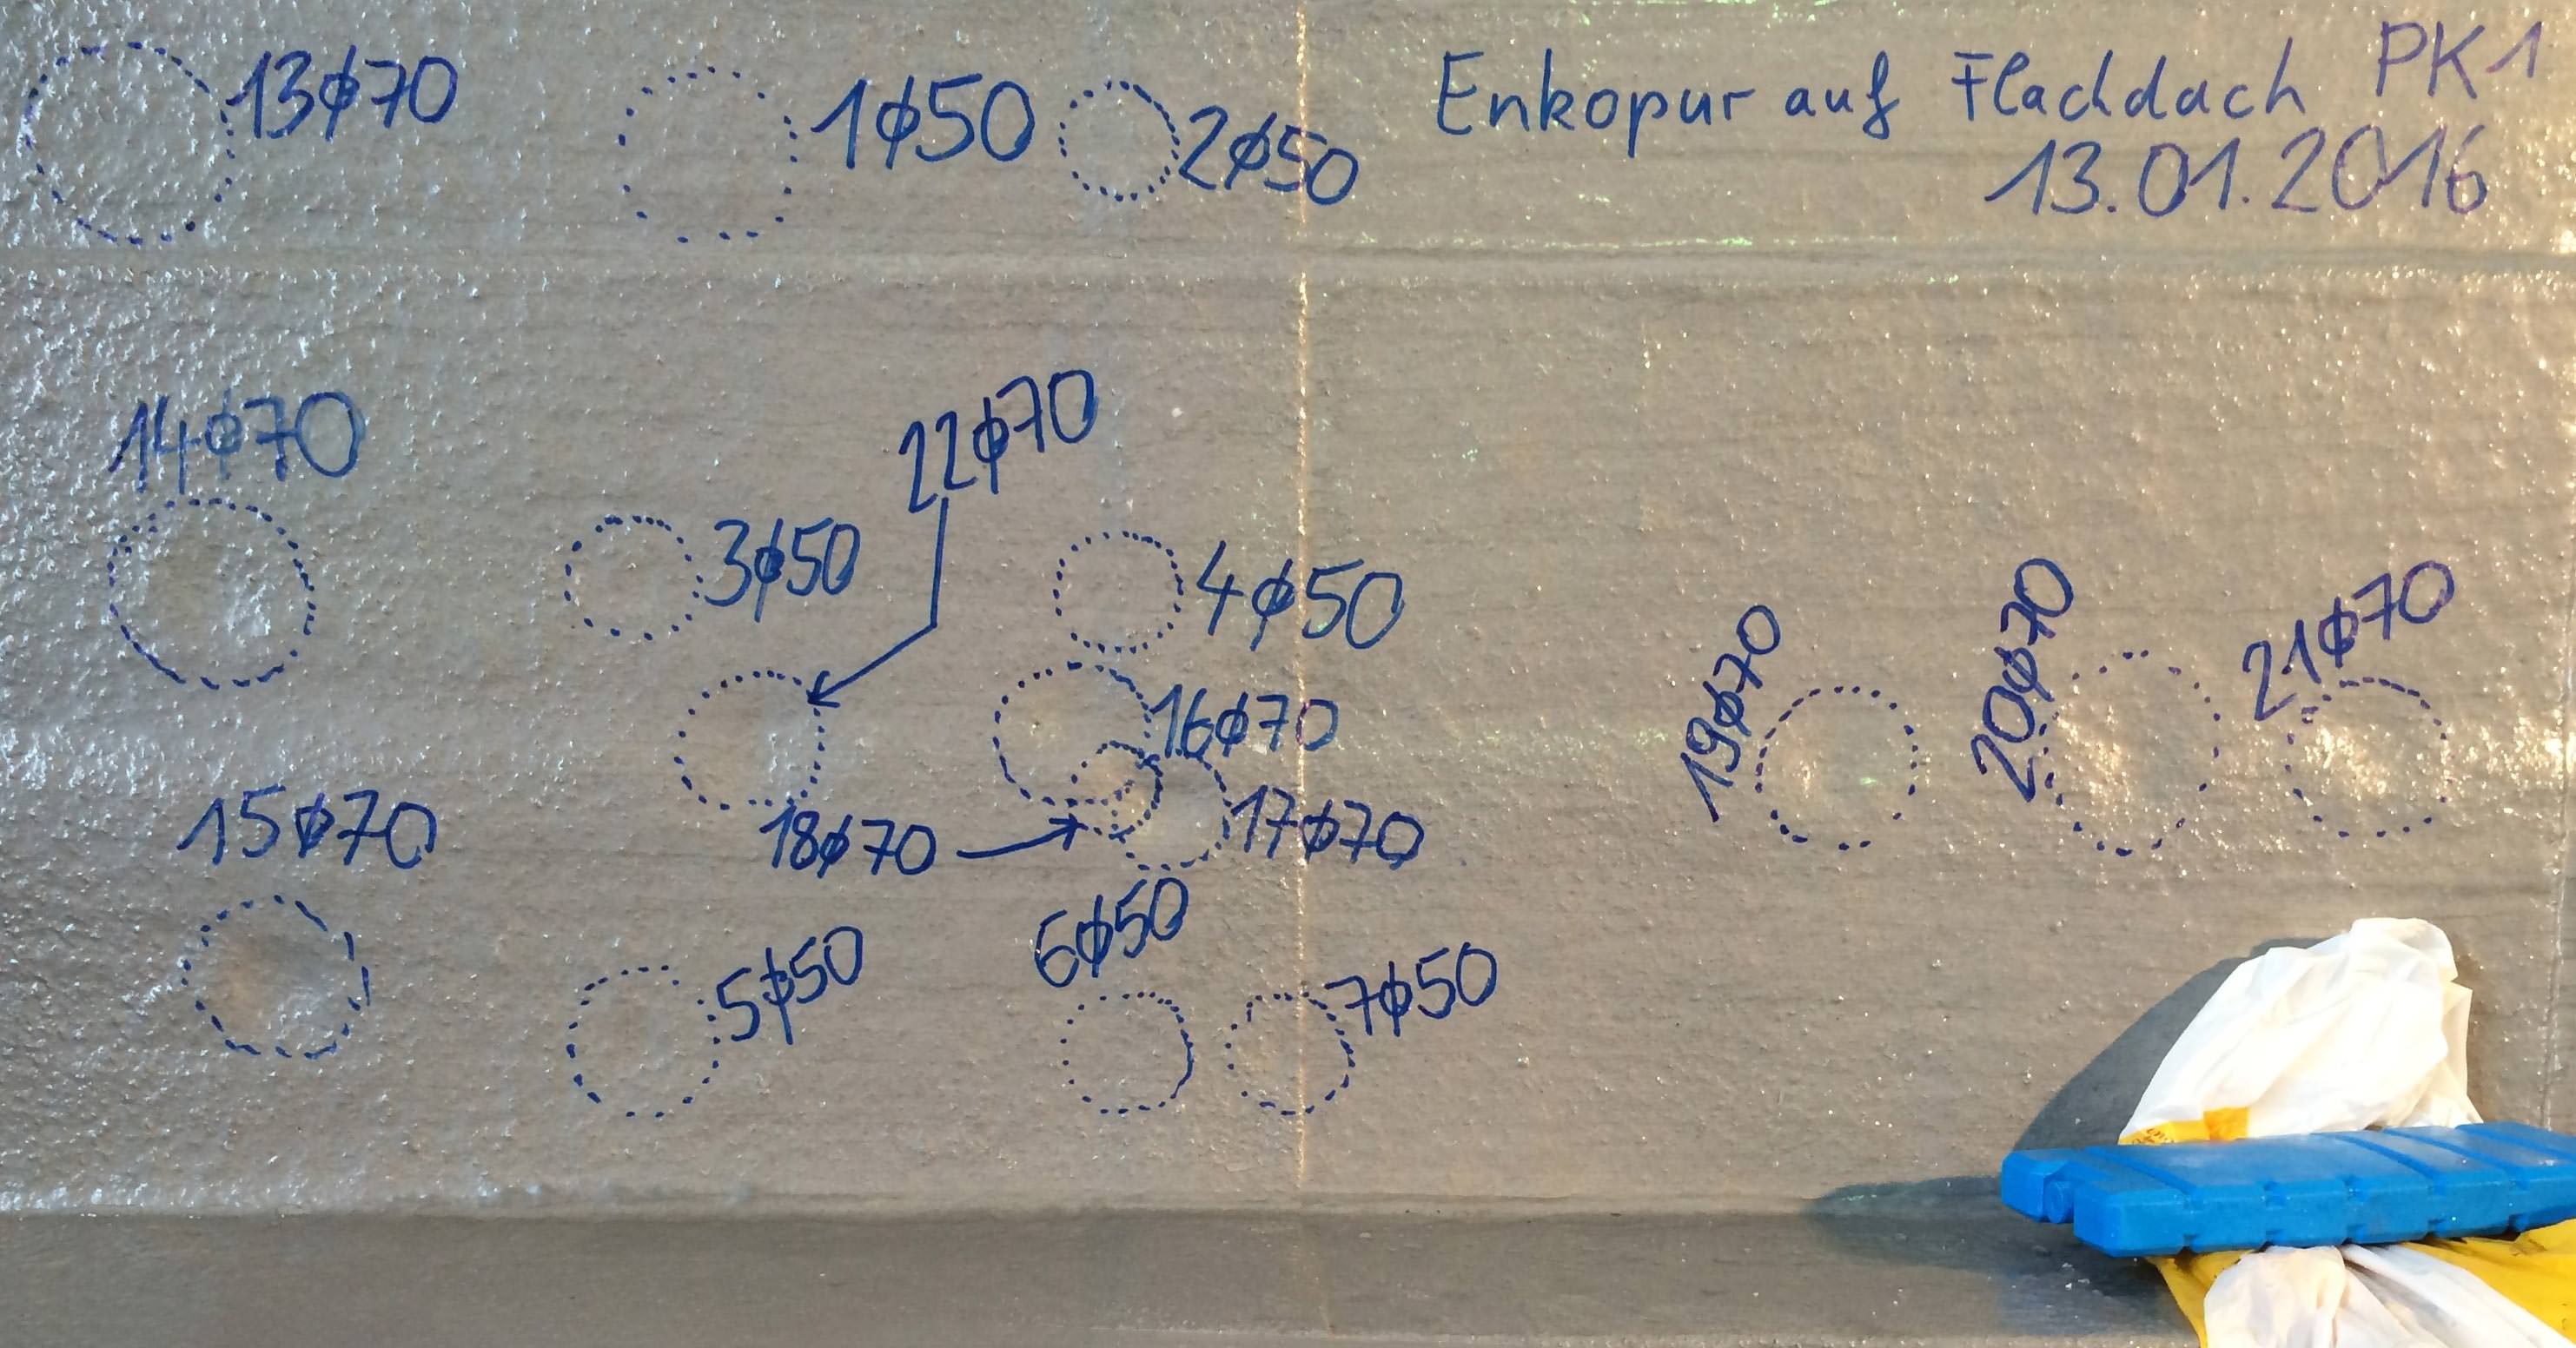 13ϕ70
1ϕ50
2ϕ50
Enkopur auf Flachdach PK1
13.01.2016
14ϕ70
22ϕ70
3ϕ50
4ϕ50
16ϕ70
19ϕ70
20ϕ70
21ϕ70
15ϕ70
18ϕ70
17ϕ70
6ϕ50
5ϕ50
7ϕ50